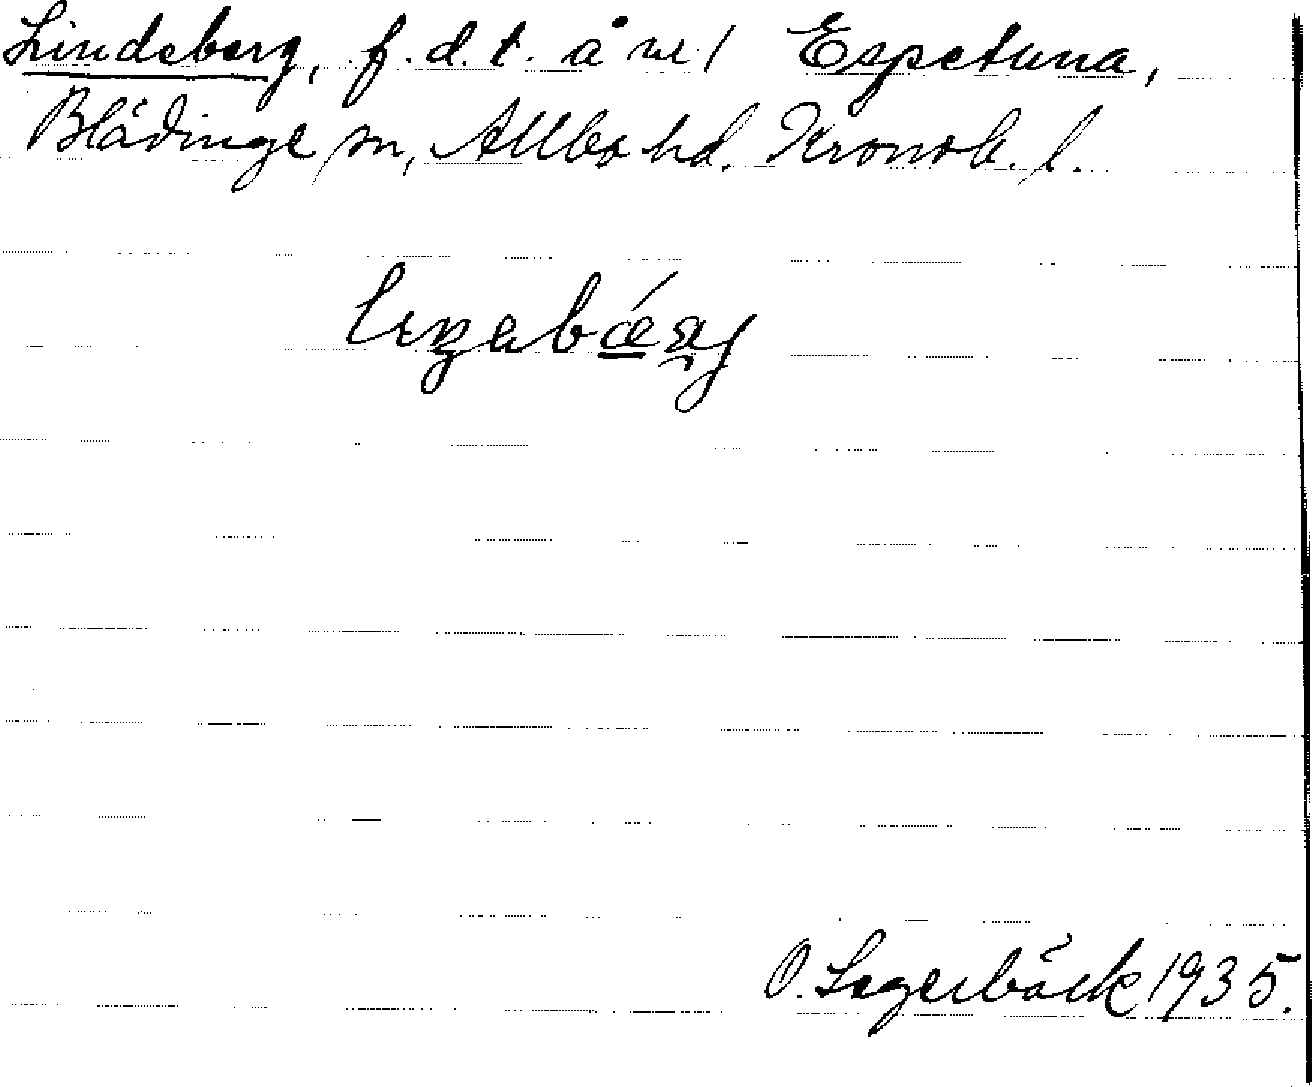 Lindeberg, f.d.t. å n:r 1 Espetuna,
Blädinge sn, Allbo hd. Kronob. l.
O. Lagerbäck 1935.